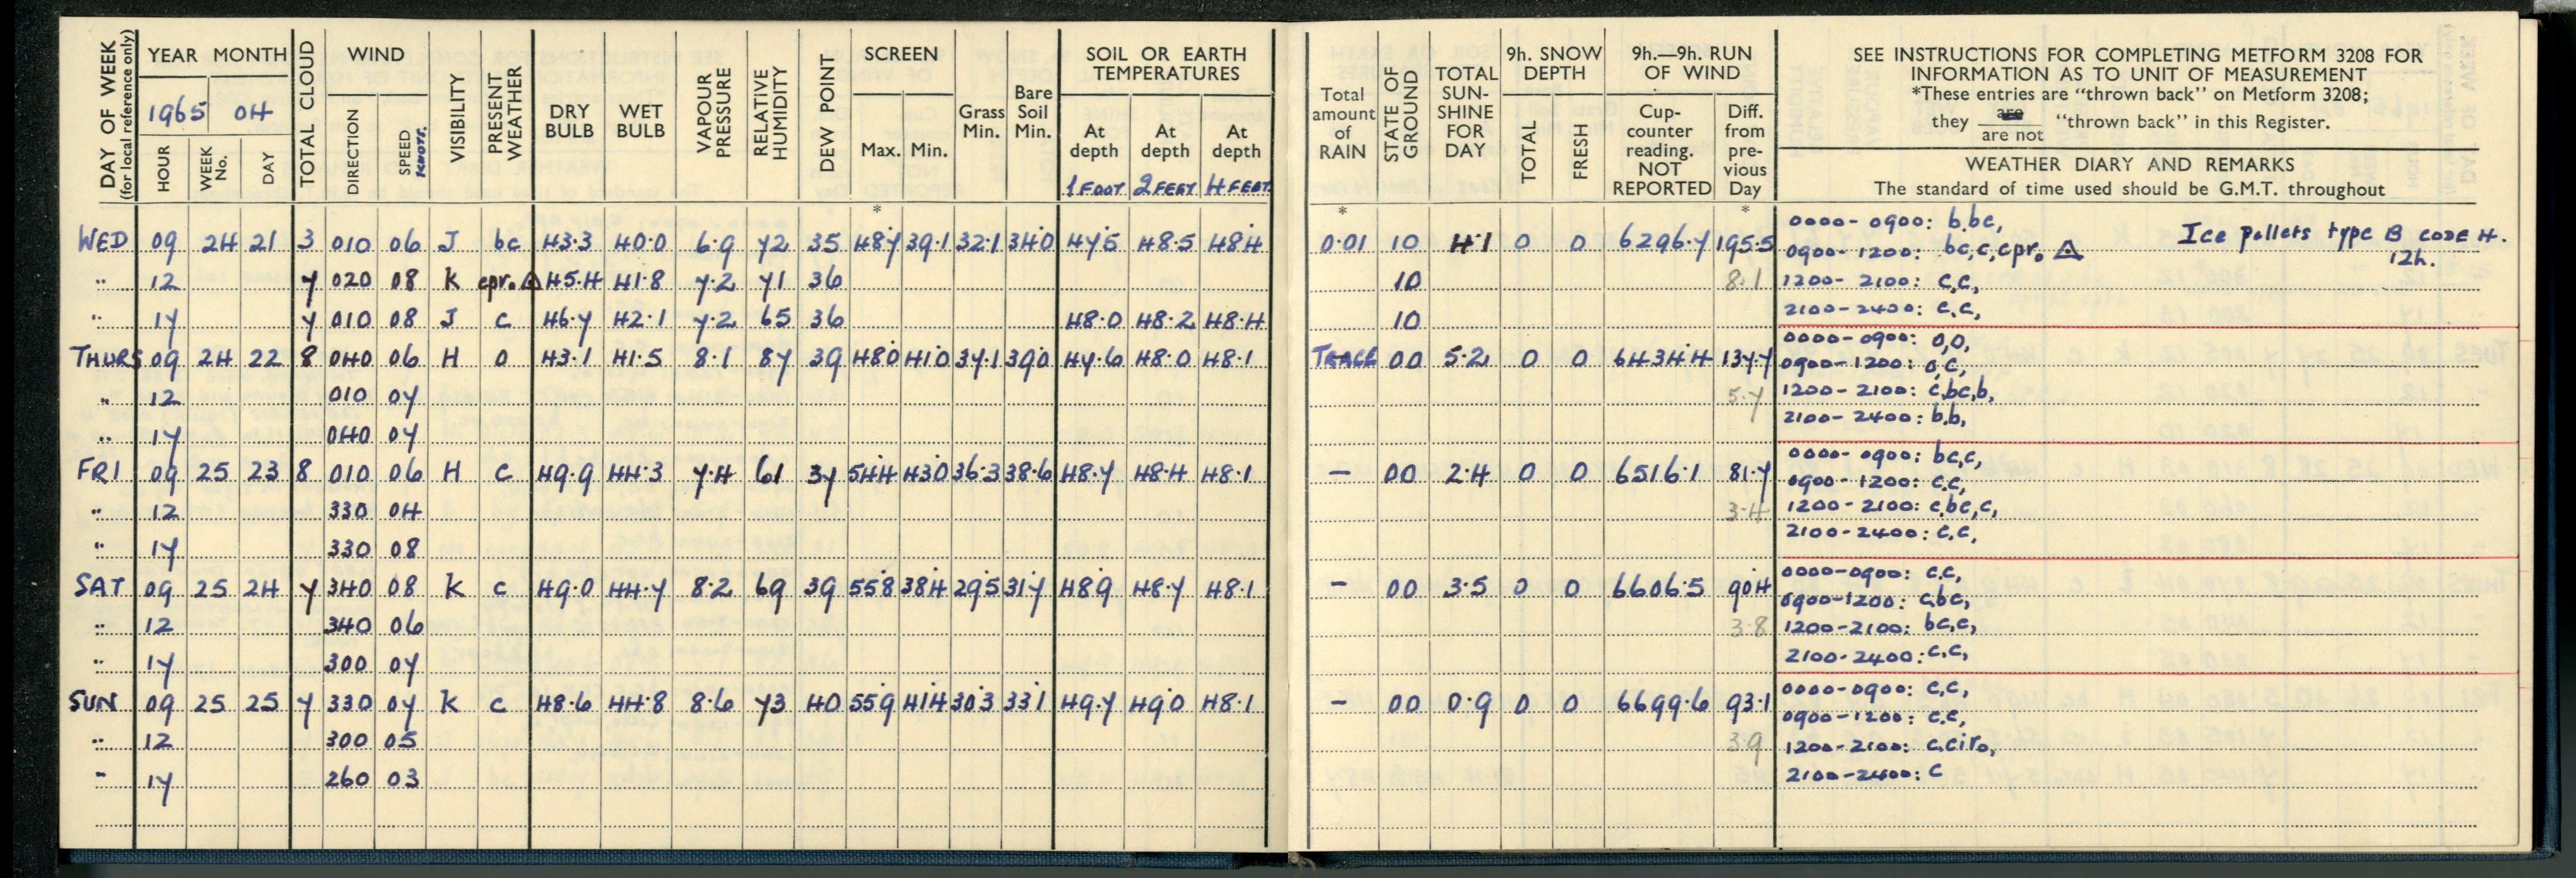 DAY OF WEEK (for local reference only)
YEAR MONTH
1965 04
HOUR WEEK No. DAY
TOTAL CLOUD
WIND
DIRECTION SPEED KNOTS.
VISIBILITY
PRESENT WEATHER
DRY BULB
WET BULB
VAPOUR PRESSURE
RELATIVE HUMIDITY
DEW POINT
SCREEN
Max. Min.
Grass Min.
Bare Soil Min.
SOIL OR EARTH TEMPERATURES
At depth 1 FOOT
At depth 2 FEET
At depth 4 FEET
Total amount of RAIN
STATE OF GROUND
TOTAL SUN-SHINE FOR DAY
9h. SNOW DEPTH
TOTAL FRESH
9h.—9h. RUN OF WIND
Cup-counter reading. NOT REPORTED
Diff. from pre-vious Day
SEE INSTRUCTIONS FOR COMPLETING METFORM 3208 FOR
INFORMATION AS TO UNIT OF MEASUREMENT
*These entries are “thrown back” on Metform 3208;
they are / are not “thrown back” in this Register.
WEATHER DIARY AND REMARKS
The standard of time used should be G.M.T. throughout
* * *
WED 09 24 21 3 010 06 J bc 43.3 40.0 6.9 72 35 48.7 39.1 32.1 34.0 47.5 48.5 48.4 0.01 10 4.1 0 0 6296.7 195.5
" 12 7 020 08 K cpr. △ 45.4 41.8 7.2 71 36 10 8.1
" 17 7 010 08 J c 46.7 42.1 7.2 65 36 48.0 48.2 48.4 10
0000-0900: b,bc,
0900-1200: bc,c,cpr. △
1200-2100: c,c,
2100-2400: c,c,
Ice pellets type B code 4.
12h.
THURS 09 24 22 8 040 06 H o 43.1 41.5 8.1 87 39 48.0 41.0 37.1 39.0 47.6 48.0 48.1 TRACE 00 5.2 0 0 6434.4 137.7
" 12 010 07 5.7
" 17 040 07
0000-0900: o,o,
0900-1200: o,c,
1200-2100: c,bc,b,
2100-2400: b,b,
FRI 09 25 23 8 010 06 H c 49.9 44.3 7.4 61 37 54.4 43.0 36.3 38.6 48.7 48.4 48.1 – 00 2.4 0 0 6516.1 81.7
" 12 330 04 3.4
" 17 330 08
0000-0900: bc,c,
0900-1200: c,c,
1200-2100: c,bc,c,
2100-2400: c,c,
SAT 09 25 24 7 340 08 K c 49.0 44.7 8.2 69 39 55.8 38.4 29.5 31.7 48.9 48.7 48.1 – 00 3.5 0 0 6606.5 90.4
" 12 340 06 3.8
" 17 300 07
0000-0900: c,c,
0900-1200: c,bc,
1200-2100: bc,c,
2100-2400: c,c,
SUN 09 25 25 7 330 07 K c 48.6 44.8 8.6 73 40 55.9 41.4 30.3 33.1 49.7 49.0 48.1 – 00 0.9 0 0 6699.6 93.1
" 12 300 05 3.9
" 17 260 03
0000-0900: c,c,
0900-1200: c,c,
1200-2100: c,ciro,
2100-2400: c